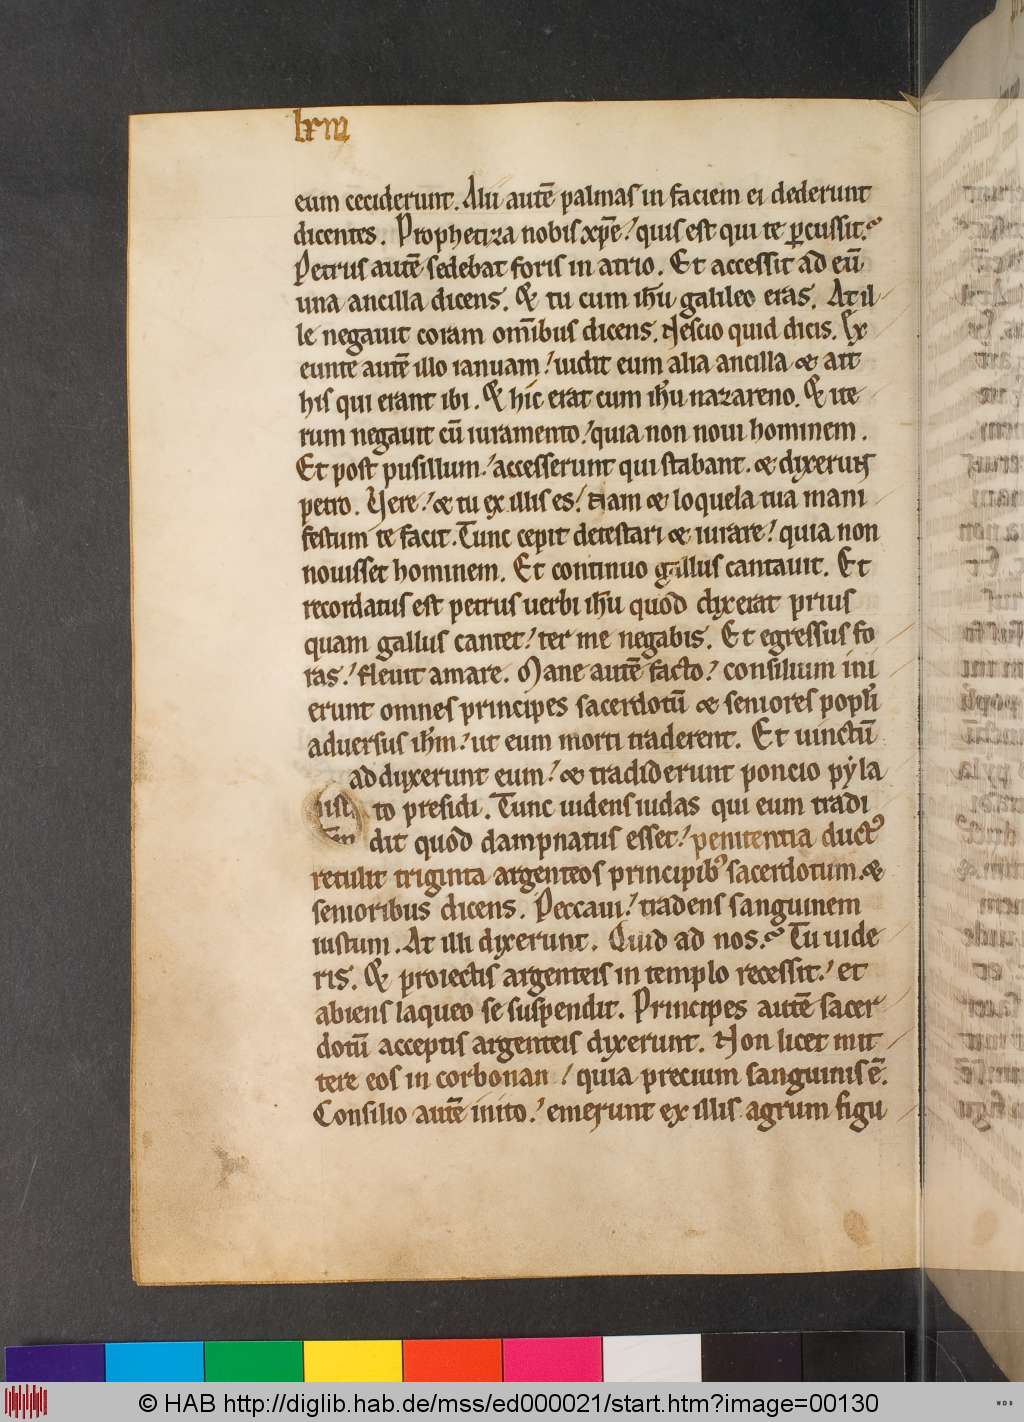 lxiii
eum ceciderunt. Alii autē palmas in faciem ei dederunt
dicentes. Prophetiza nobis xp̄e! quis est qui te ꝑcussit.
Petrus autē sedebat foris in atrio. Et accessit ad eū
una ancilla dicens. & tu cum ih̄u galileo eras. At il
le negauit coram om̄ibus dicens. Nescio quid dicis. Ex
eunte autē illo ianuam! uidit eum alia ancilla & ait
his qui erant ibi. & hic erat cum ih̄u nazareno. & ite
rum negauit cū iuramento! quia non noui hominem.
Et post pusillum! accesserunt qui stabant. & dixerunt
petro. Vere! & tu ex illis es! Nam & loquela tua mani
festum te facit. Tunc cepit detestari & iurare! quia non
nouisset hominem. Et continuo gallus cantauit. Et
recordatus est petrus uerbi ih̄u quod dixerat prius
quam gallus cantet! ter me negabis. Et egressus fo
ras! fleuit amare. Mane autē facto! consilium ini
erunt omnes principes sacerdotū & seniores popl̄i
aduersus ih̄m! ut eum morti traderent. Et uinctū
adduxerunt eum! & tradiderunt poncio pyla
to presidi. Tunc uidens iudas qui eum tradi
dit quod dampnatus esset! penitentia duct᾽
retulit triginta argenteos principib᾽ sacerdotum. &
senioribus dicens. Peccaui! tradens sanguinem
iustum. At illi dixerunt. Quid ad nos. Tu uide
ris. & proiectis argenteis in templo recessit! et
abiens laqueo se suspendit. Principes autē sacer
dotū acceptis argenteis dixerunt. Non licet mit
tere eos in corbonan! quia precium sanguinis ē.
Consilio autē inito! emerunt ex illis agrum figu
© HAB http://diglib.hab.de/mss/ed000021/start.htm?image=00130